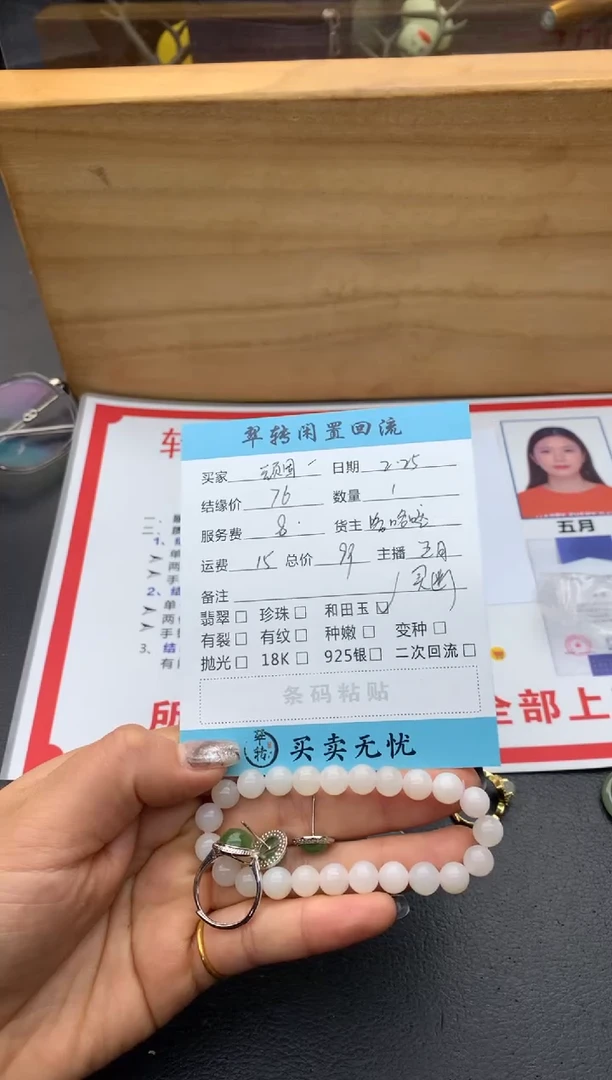 翠转闲置回流
买家 日期 2.25
结缘价 76 数量 1
服务费 8. 货主 哈哈哈
运费 15 总价 99 主播 五月
备注
翡翠□ 珍珠□ 和田玉☑
有裂□ 有纹□ 种嫩□ 变种□
抛光□ 18K□ 925银□ 二次回流□
条码粘贴
翠转 买卖无忧
五月
转
一、
二、
1、结
单
两
手
2、结
单
两
手
3、结
有
所
全部上